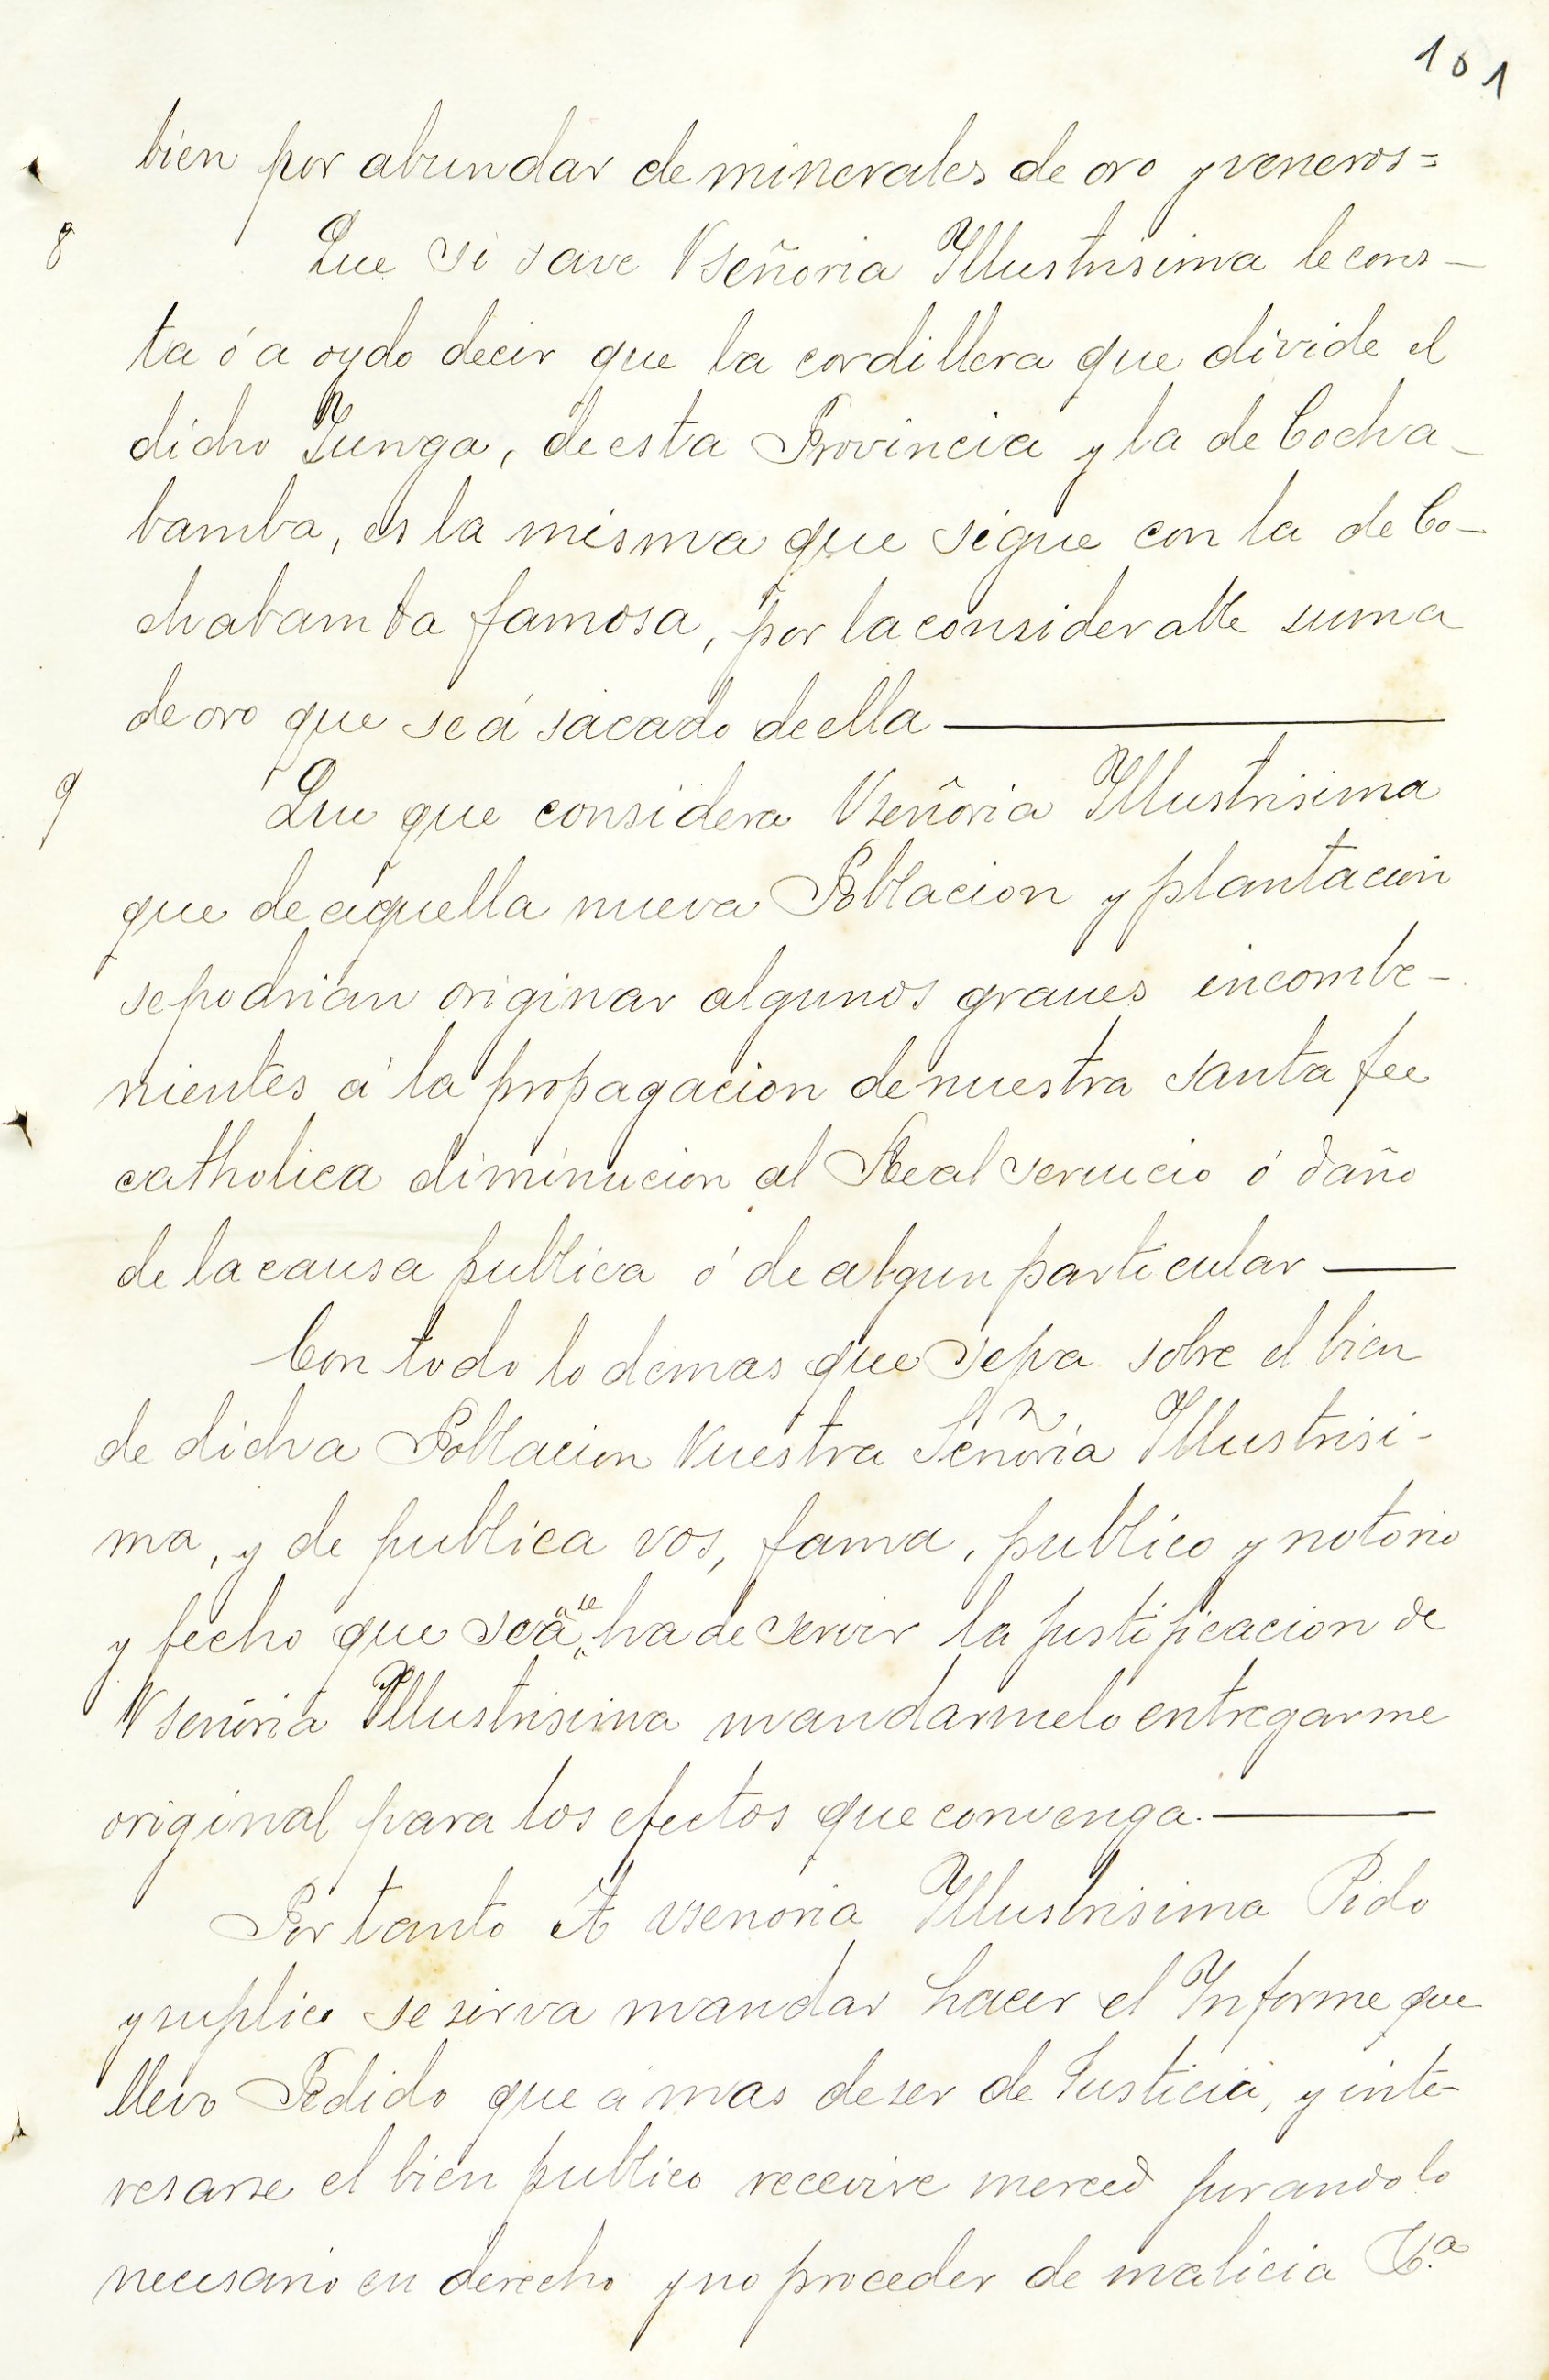 101
bien por abundar de minerales de oro y veneros=
8 Que si save Vseñoria Yllustrisima le cons-
ta ó a oydo decir que la cordillera que divide el
dicho Yunga, de esta Provincia y la de Cocha-
bamba, es la misma que sigue con la de Co-
chabamba famosa, por la considerable suma
de oro que se á sacado de ella —
9 Que que considera Vseñoria Yllustrisima
que de aquella nueva Poblacion y plantacion
se podrian originar algunos graues incombe-
nientes á la propagacion de nuestra santa fee
catholica diminucion al Real seruicio ó daño
de la causa publica ó de algun particular —
Con todo lo demas que sepa sobre el bien
de dicha Poblacion Vuestra Señoria Yllustrisi-
ma, y de publica vos, fama, publico y notorio
y fecho que sea "se" ha de servir la justificacion de
Vseñoria Yllustrisima mandarmelo entregarme
original para los efectos que convenga. —
Por tanto A vsenoria Yllustrisima Pido
y suplico se sirva mandar hacer el Ynforme que
llevo Pedido que a mas de ser de Justicia, y inte-
resarse el bien publico recevire merced jurando lo
necesario en derecho y no proceder de malicia &.a